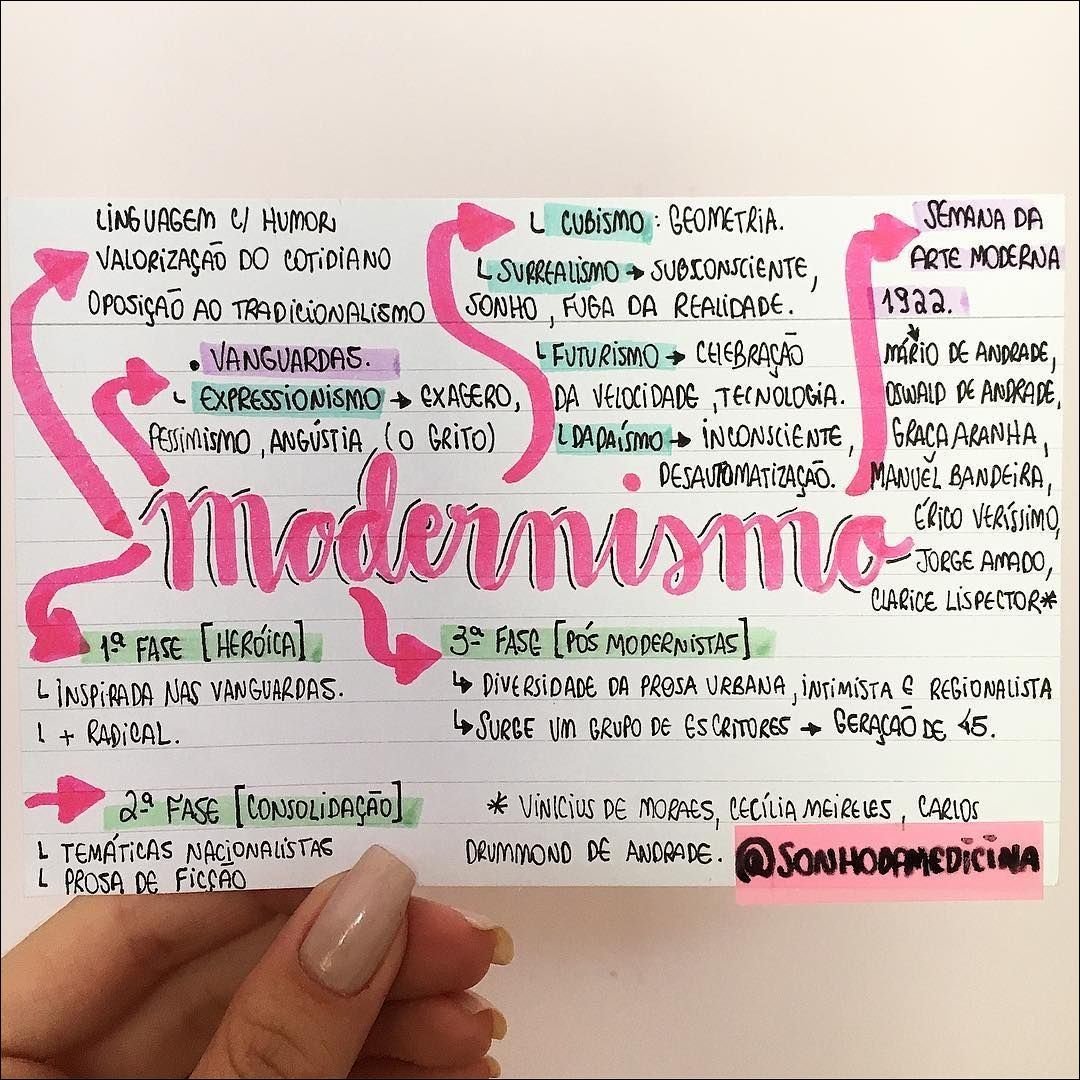 LINGUAGEM C/ HUMOR
VALORIZAÇÃO DO COTIDIANO
OPOSIÇÃO AO TRADICIONALISMO
• VANGUARDAS.
└ EXPRESSIONISMO → EXAGERO,
PESSIMISMO, ANGÚSTIA, (O GRITO)
└ CUBISMO: GEOMETRIA.
└ SURREALISMO → SUBCONSCIENTE,
SONHO, FUGA DA REALIDADE.
└ FUTURISMO → CELEBRAÇÃO
DA VELOCIDADE, TECNOLOGIA.
└ DADAÍSMO → INCONSCIENTE,
DESAUTOMATIZAÇÃO.
SEMANA DA
ARTE MODERNA
1922.
MÁRIO DE ANDRADE,
OSWALD DE ANDRADE,
GRAÇA ARANHA,
MANUEL BANDEIRA,
ÉRICO VERÍSSIMO,
JORGE AMADO,
CLARICE LISPECTOR*
Modernismo
1ª FASE [HERÓICA]
└ INSPIRADA NAS VANGUARDAS.
└ + RADICAL.
2ª FASE [CONSOLIDAÇÃO]
└ TEMÁTICAS NACIONALISTAS
└ PROSA DE FICÇÃO
3ª FASE [PÓS MODERNISTAS]
↳ DIVERSIDADE DA PROSA URBANA, INTIMISTA E REGIONALISTA
↳ SURGE UM GRUPO DE ESCRITORES → GERAÇÃO DE 45.
* VINICIUS DE MORAES, CECÍLIA MEIRELES, CARLOS
DRUMMOND DE ANDRADE.
@SONHODAMEDICINA